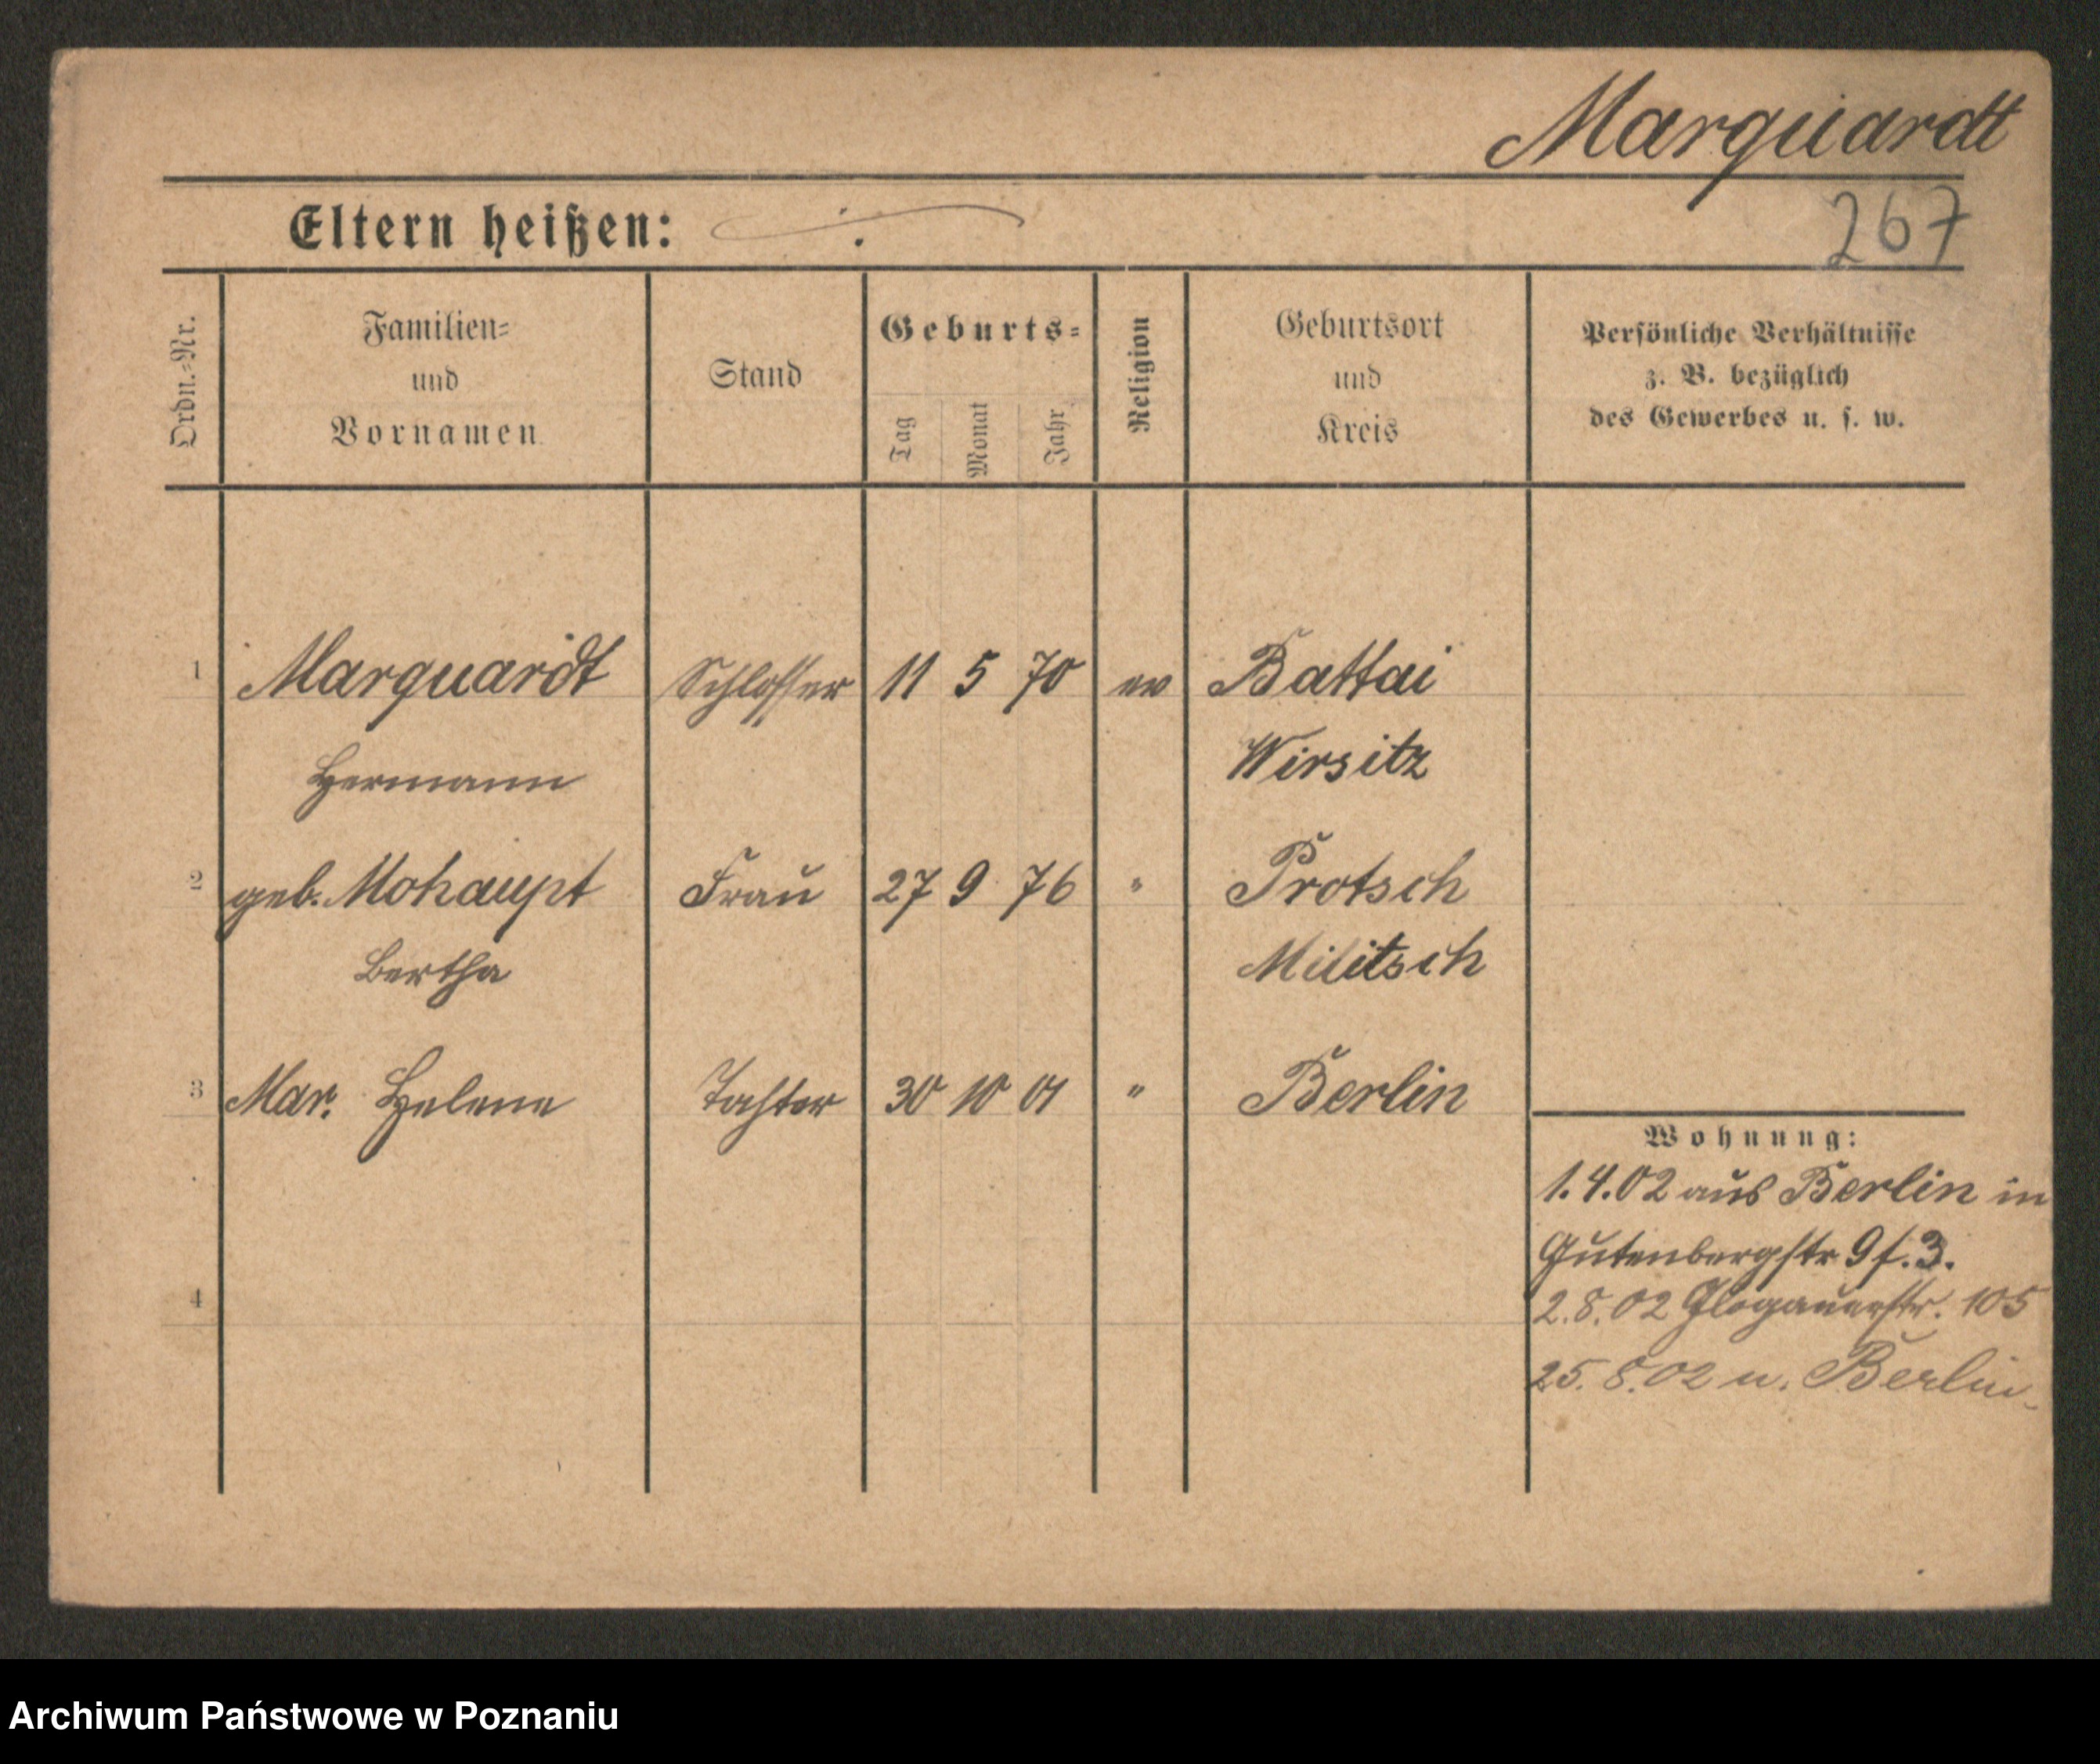 Marquardt
Eltern heißen:
267
Ordn.-Nr.
Familien-
und
Vornamen
Stand
Geburts-
Tag
Monat
Jahr
Religion
Geburtsort
und
Kreis
Persönliche Verhältnisse
z. B. bezüglich
des Gewerbes u. s. w.
1 Marquardt Schlosser 11 5 70 ev Battai
Hermann Wirsitz
2 geb. Mohaupt Frau 27 9 76 " Protsch
Bertha Militsch
3 Mar. Helene Tochter 30 10 01 " Berlin
Wohnung:
1.4.02 aus Berlin in
Gutenbergstr 9 f. 3.
4
2.8.02 Glogauerstr. 105
25.8.02 n. Berlin
Archiwum Państwowe w Poznaniu